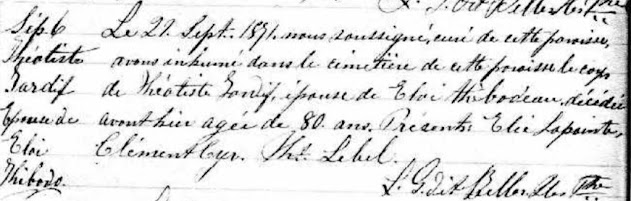 Sép. 6
Théotiste
Tardif
Epouse de
Eloi
Thibodo.
Le 29 Sept. 1871, nous soussigné, curé de cette paroisse,
avons inhumé dans le cimetière de cette paroisse le corps
de Théotiste Tardif, épouse de Eloi Thibodeau, décédée
avant hier agée de 80 ans. Présents: Elie Lapointe,
Clément Cyr. Ths. Lebel.
L. G. dit